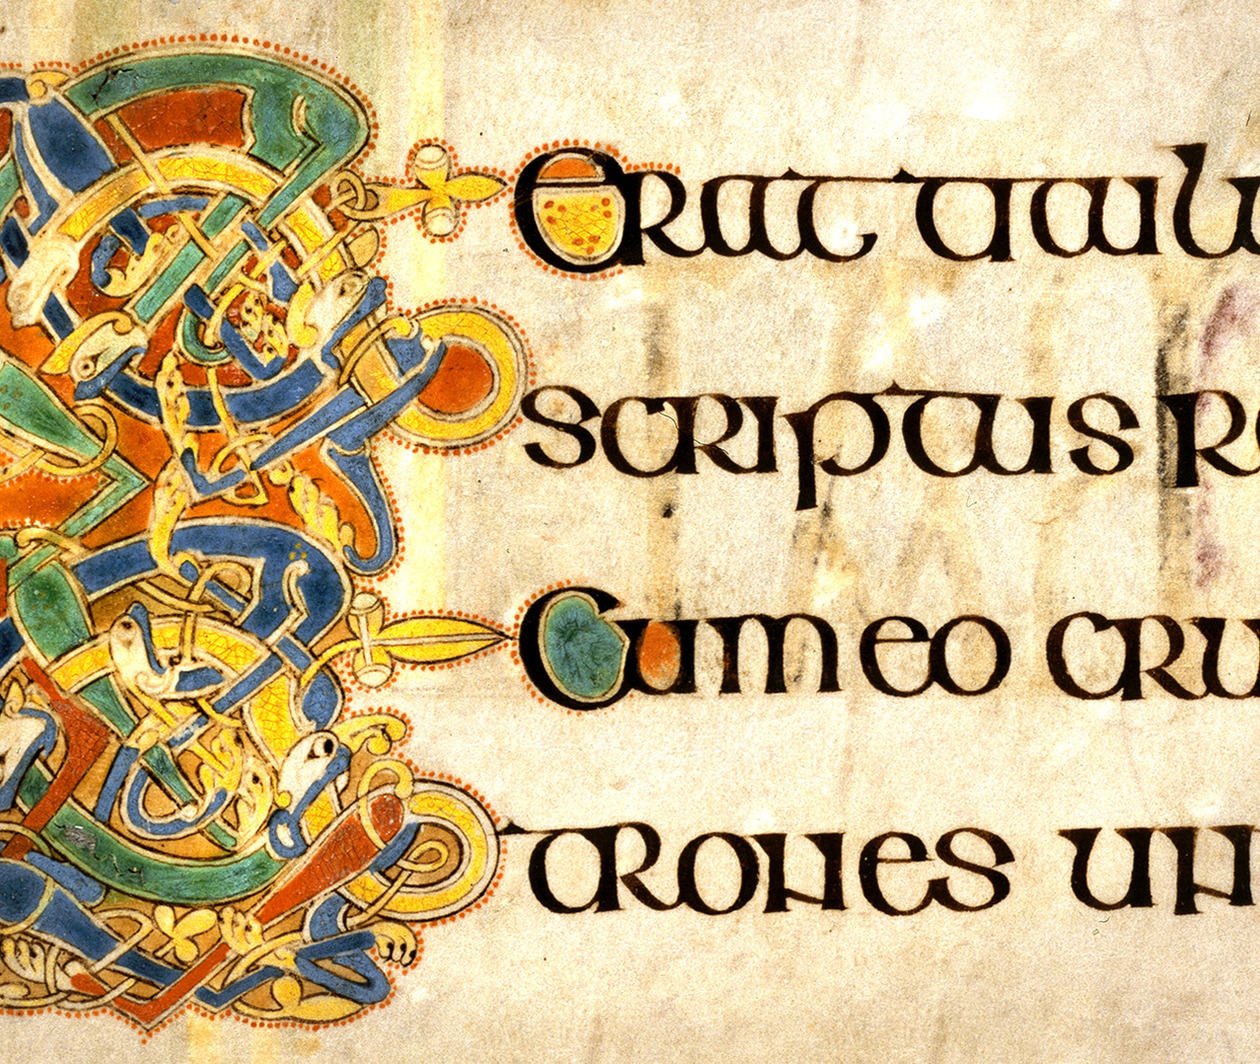 ERAT TITUL
SCRIPTUS RE
CUM EO CRU
TRONES UN